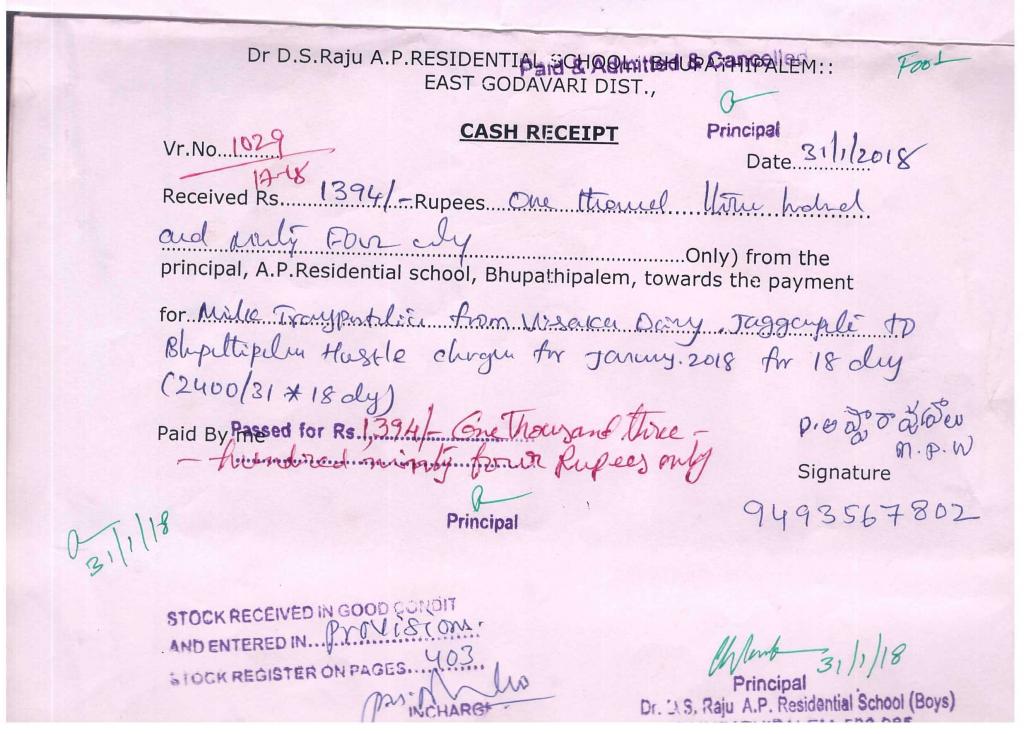 Dr D.S.Raju A.P.RESIDENTIAL SCHOOL::BHUPATHIPALEM::
Paid & Admitted & Cancelled
Food
EAST GODAVARI DIST.,
CASH RECEIPT
Principal
Vr.No...1029
17-18
Date...31/1/2018
Received Rs...1394/-Rupees...One thousand three hundred
and ninty Four only...Only) from the
principal, A.P.Residential school, Bhupathipalem, towards the payment
for...Milk Transportation from Visaka Dairy, to
charges for 2018 for 18 day
(2400/31 * 18 dy)
Paid By me
Passed for Rs.1,394/- One Thousand three -
- hundred ninety four Rupees only
M.P.W
Signature
Principal
9493567802
31/1/18
STOCK RECEIVED IN GOOD CONDIT
AND ENTERED IN...Provision.
STOCK REGISTER ON PAGES...403
INCHARGE
31/1/18
Principal
Dr. D.S. Raju A.P. Residential School (Boys)